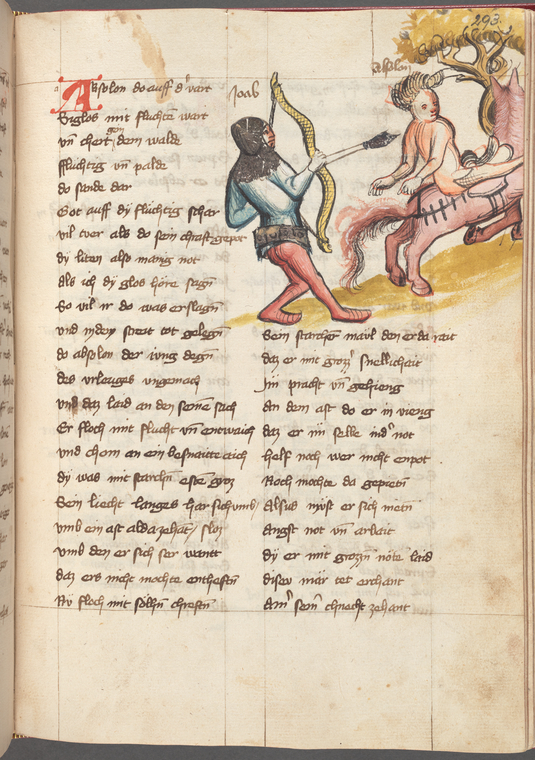 293
absolon
Joab
Absolon do auff d' vart
Siglos mit fluchte wart
vn̄ chert gen dem walde
fluchtig vn̄ palde
do sande der
Got auff dy fluchtig schar
vil swer als do sein
dy liten also manig not
Als ich dy glos hore sagn̄
So vil ir do was erslagn̄
vnd in dem streit tot gelegn̄
do absolon der iung degn̄
des vrleuges vngemach
Vnd daz laid an den seinē sach
Er floch mit flucht vn̄ entwaich
vnd chom an ein aich
dy was mit starchn̄ estē groz
Sein liecht langes har sich vmb
vmb ein ast alda zehāt sloz
vmb den er sich ser wantt
daz ers nicht mochte enthestn̄
Ny floch mit solhn̄ chreftn̄
Sein starcher maul den er da rait
daz er mit groz' snellichait
Im pracht vn̄ gehieng
An dem ast do er in vieng
daz er im selbe ind' not
helf noch wer nicht enpot
Noch mochte da gepietn̄
Alsus must er sich
Angst not vn̄ arbait
dy er mit grozn̄ note laid
diser mār tet erchant
Ain' sein' chnecht zehant